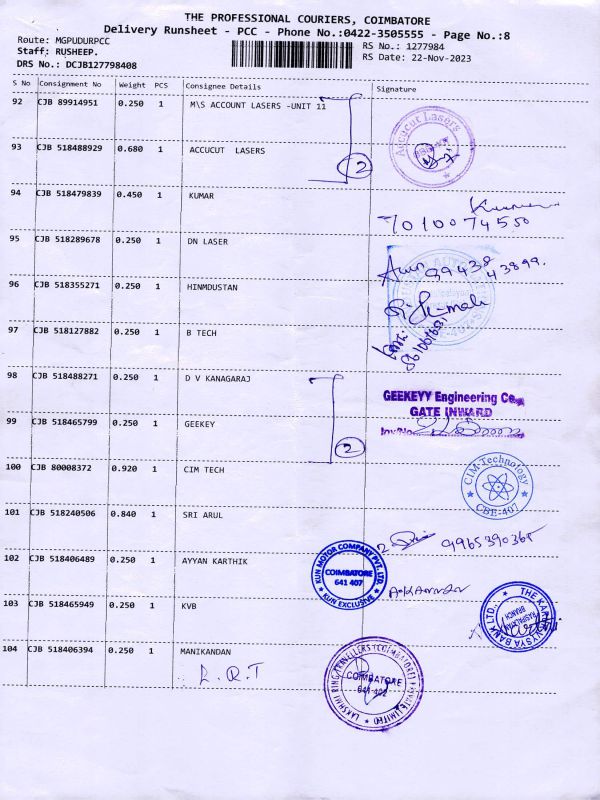 THE PROFESSIONAL COURIERS, COIMBATORE
Delivery Runsheet - PCC - Phone No.:0422-3505555 - Page No.:8
Route: MGPUDURPCC
RS No.: 1277984
Staff: RUSHEEP.
RS Date: 22-Nov-2023
DRS No.: DCJB127798408
S No Consignment No Weight PCS Consignee Details Signature
92 CJB 89914951 0.250 1 M\S ACCOUNT LASERS -UNIT 11
Accucut Lasers
93 CJB 518488929 0.680 1 ACCUCUT LASERS
2
94 CJB 518479839 0.450 1 KUMAR
Kumar
7010074550
95 CJB 518289678 0.250 1 DN LASER
99438 43899.
96 CJB 518355271 0.250 1 HINMDUSTAN
97 CJB 518127882 0.250 1 B TECH
98 CJB 518488271 0.250 1 D V KANAGARAJ
GEEKEYY Engineering Co.,
GATE INWARD
99 CJB 518465799 0.250 1 GEEKEY
Inv No
2
100 CJB 80008372 0.920 1 CIM TECH
CIM-Technology
CBE-407
101 CJB 518240506 0.840 1 SRI ARUL
9965390365
102 CJB 518406489 0.250 1 AYYAN KARTHIK
KUN MOTOR COMPANY PVT. LTD.
COIMBATORE
641 407
KUN EXCLUSIVE
103 CJB 518465949 0.250 1 KVB
THE KARUR VYSYA BANK LTD.,
BRANCH
104 CJB 518406394 0.250 1 MANIKANDAN
L.R.T
LAKSHMI RING TRAVELLERS (COIMBATORE) PRIVATE LIMITED
COIMBATORE
641 402